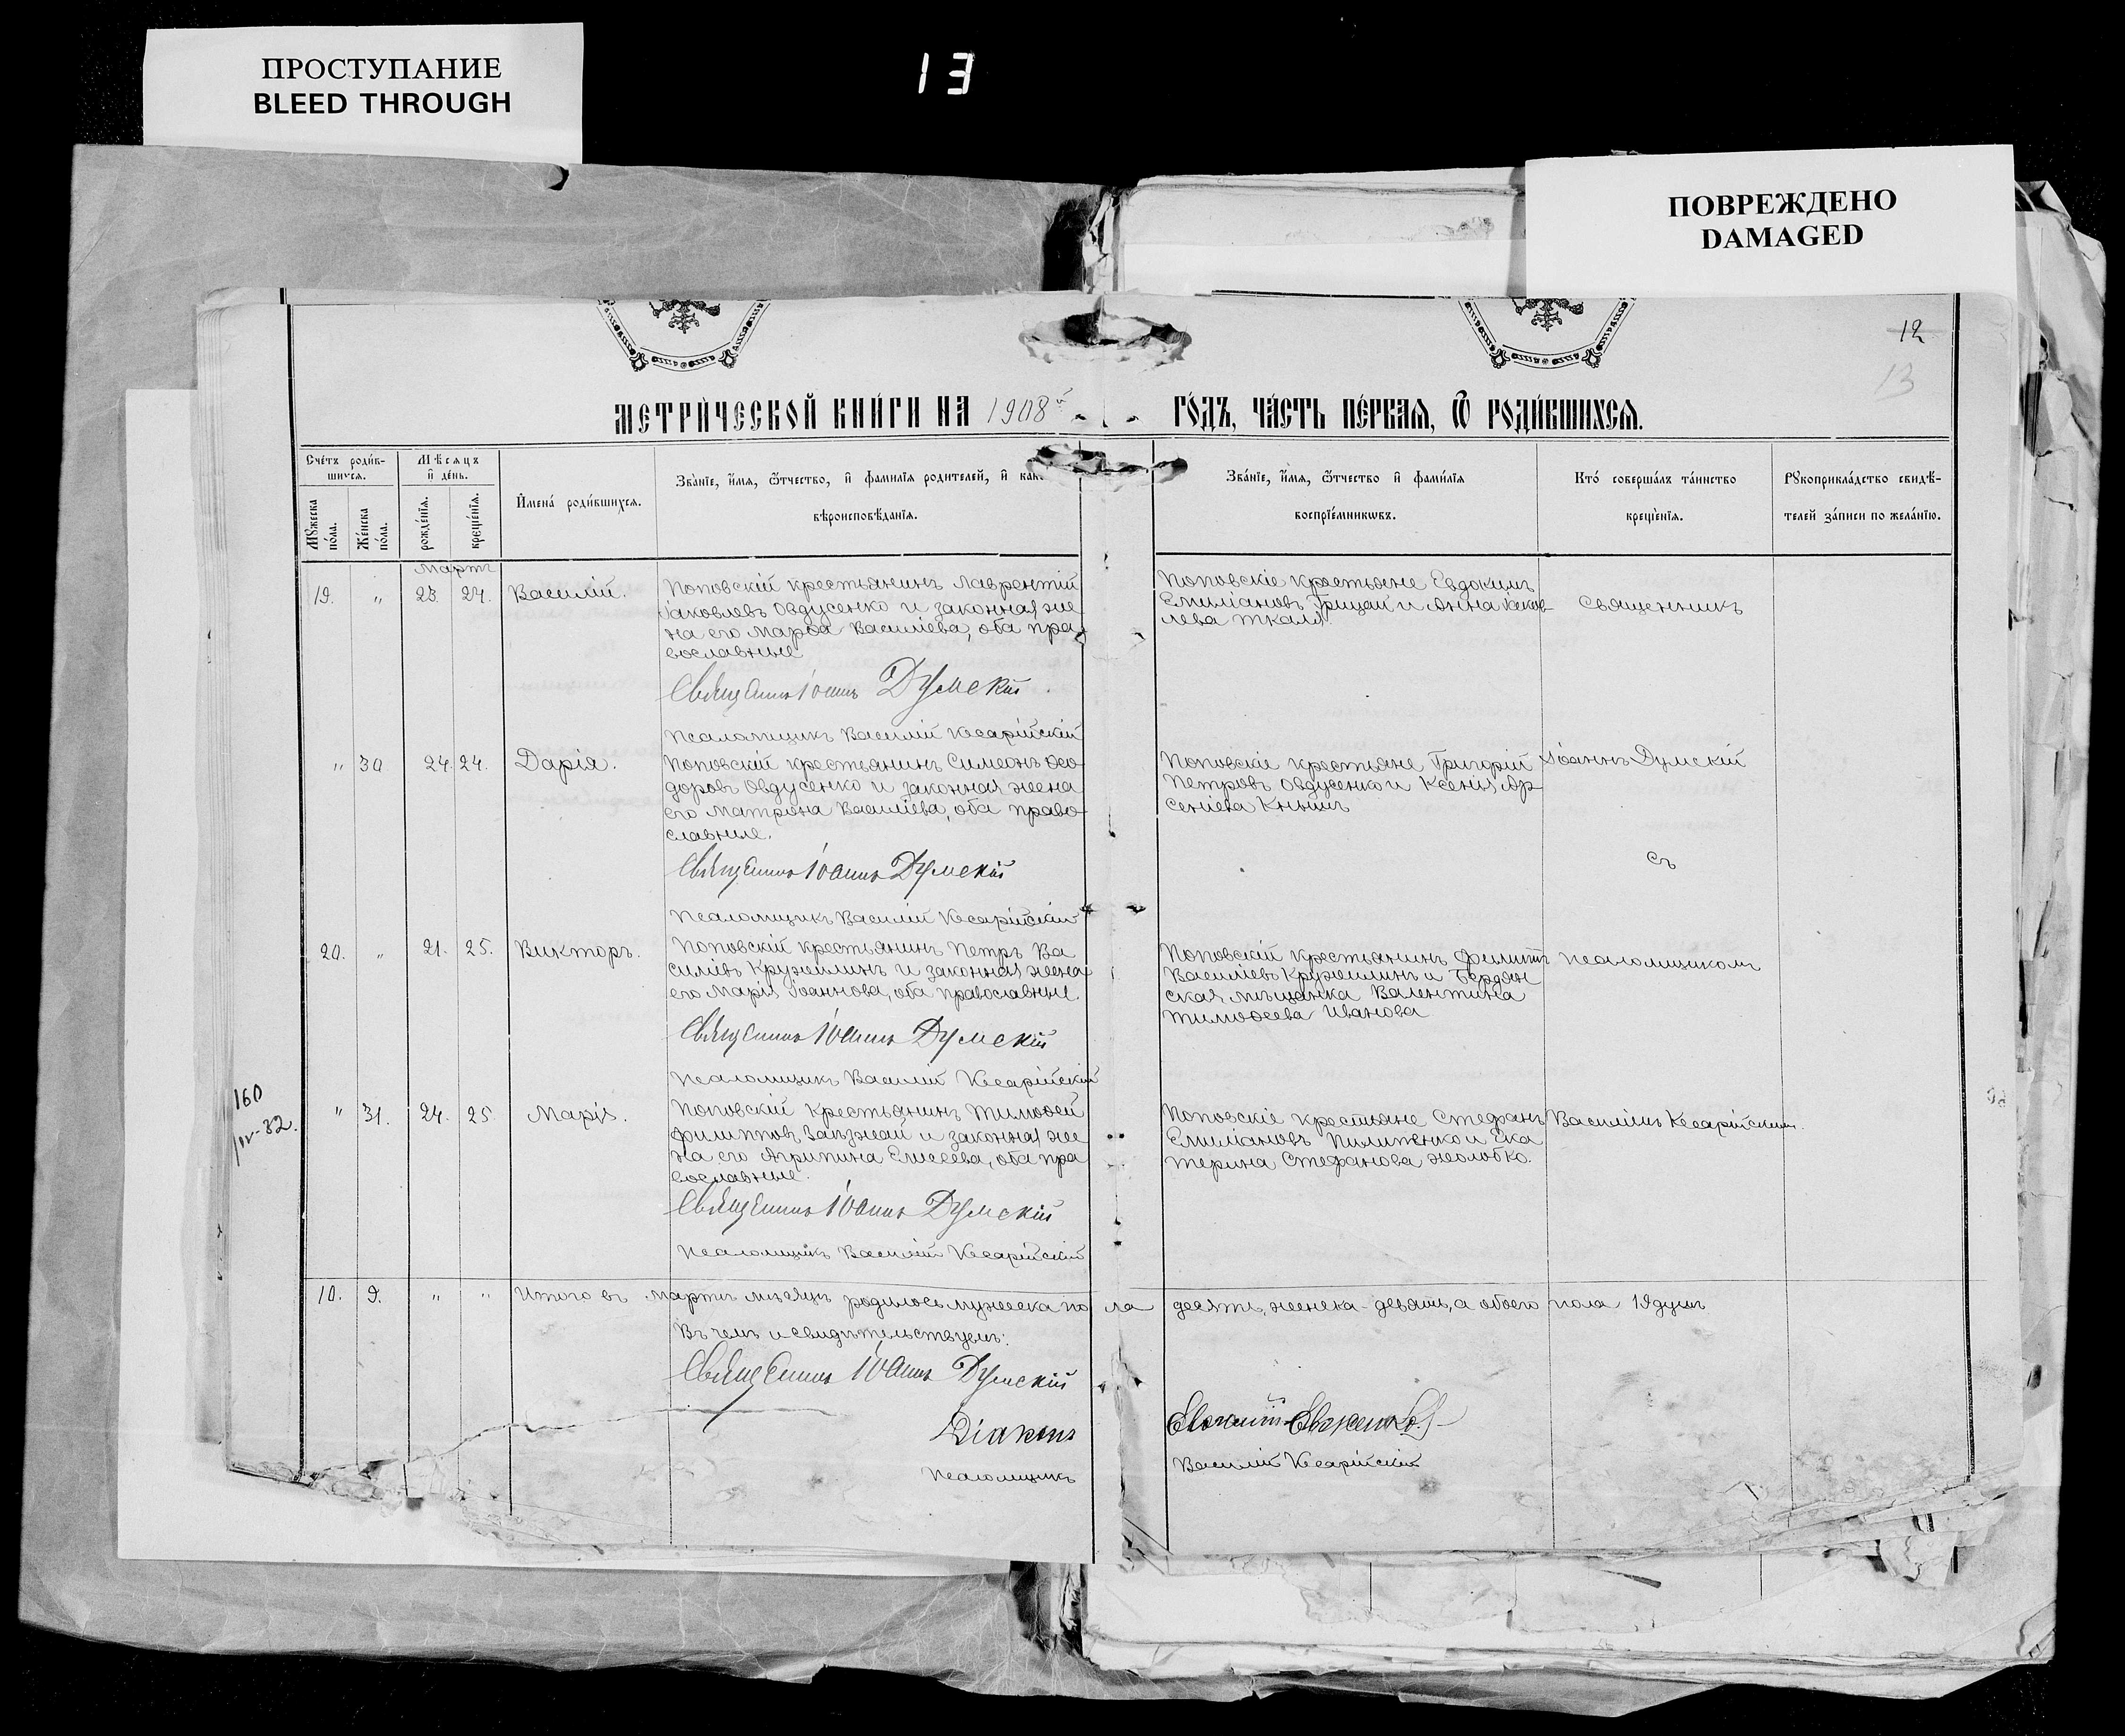 ПРОСТУПАНИЕ
BLEED THROUGH
13
ПОВРЕЖДЕНО
DAMAGED
12
13
МЕТРИ́ЧЕСКОЙ КНИ́ГИ НА 1908й
ГО́ДЪ, ЧА́СТЬ ПЕ́РВАЯ, Ѿ РОДИ́ВШИХСЯ.
Сче́тъ роди́в-
шихся.
Мѣсяцъ
и де́нь.
Му́жеска
по́ла.
Же́нска
по́ла.
рожде́нія.
креще́нія.
Имена́ роди́вшихся.
Зва́ніе, и́мя, ѻ́тчество, и фамилія родителей, и как
вѣроисповѣ́данія.
Зва́ніе, и́мя, ѻ́тчество и фами́лія
воспріе́мниковъ.
Кто́ соверша́лъ та́инство
креще́нія.
Рукоприкла́дство свидѣ́-
телей за́писи по жела́нію.
Мартъ
19. " 23. 24. Василій.
Поповскій крестьянинъ Лаврентій
Іаковлевъ Овдусенко и законная же
на его Марѳа Василіева, оба пра-
вославные
Священникъ Іоаннъ Думскій
Псаломщикъ Василій Кесарійскій
Поповскіе крестьяне Евдокимъ
Емиліановъ Грицай и Анна Іаков-
лева Ткаля.
Священникъ
" 30 24. 24. Дарія.
Поповскій крестьянинъ Симеонъ Ѳео
доровъ Овдусенко и законная жена
его Матрона Василіева, оба право-
славные.
Священникъ Іоаннъ Думскій
Псаломщикъ Василій Кесарійскій
Поповскіе крестьяне Григорій
Петровъ Овдусенко и Ксенія Ар-
сеніева Кнышъ
Іоаннъ Думскій
съ
20. " 21. 25. Викторъ.
Поповскій крестьянинъ Петръ Ва
силіевъ Кружилинъ и законная жена
его Марія Іоаннова, оба православные.
Священникъ Іоаннъ Думскій
Псаломщикъ Василій Кесарійскій
Поповскій крестьянинъ Филиппъ
Василіевъ Кружилинъ и Бердян
ская мѣщанка Валентина
Тимоѳеева Иванова
псаломщикомъ
160
" 31. 24. 25 Марія.
Поповскій крестьянинъ Тимоѳей
Филипповъ Заѣзжай и законная же
на его Агрипина Елисеева, оба пра
вославные.
Священникъ Іоаннъ Думскій
Псаломщикъ Василій Кесарійскій
Поповскіе крестьяне Стефанъ
Емиліановъ Пилипенко и Ека
терина Стефанова Жолобко.
Василіемъ Кесарійскимъ.
10. 9. " " Итого въ мартѣ мѣсяцѣ родилось мужеска по ла десять, женска - девять, а обоего пола 19 душъ
Въ чемъ и свидѣтельствуемъ:
Священникъ Іоаннъ Думскій
Діаконъ
Псаломщикъ Василій Кесарійскій